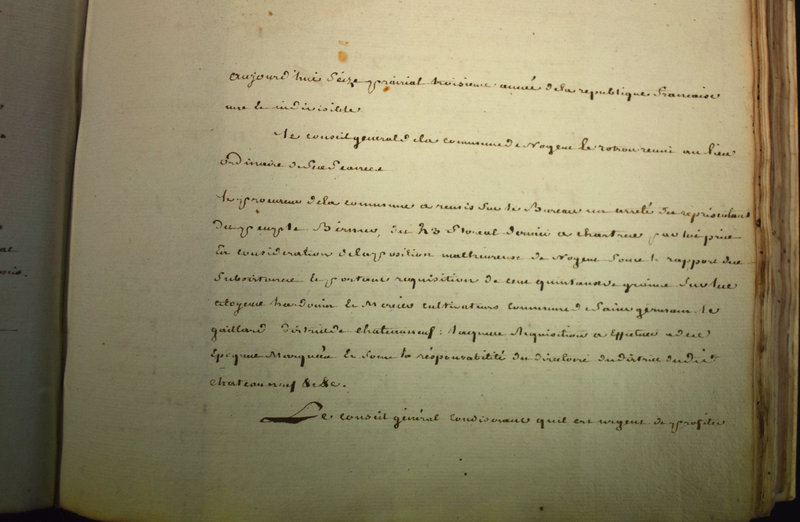 aujourd'hui seize prairial troisieme année de la republique francaise
une et indivisible
Le conseil general de la commune de Nogent le rotrou reuni au lieu
ordinaire de ses seances
Le procureur de la commune a remis sur le Bureau un arrêté du représentant
du peuple Bernier, du 23 floreal donné a chartres par lui prise
En consideration de la position malheureuse de Nogent sous le rapport des
subsistances et portant requisition de cent quintaux de grains sur les
citoyens hardouin et cultivateurs commune de Saint germain le
gaillard district de chateauneuf; laquelle Requisition a Effectuer a des
Epoques Marquées Et sous la résponsabilité du directoire du district dudit
chateauneuf &c &c.
Le conseil général Considerant quil est urgent de profiter